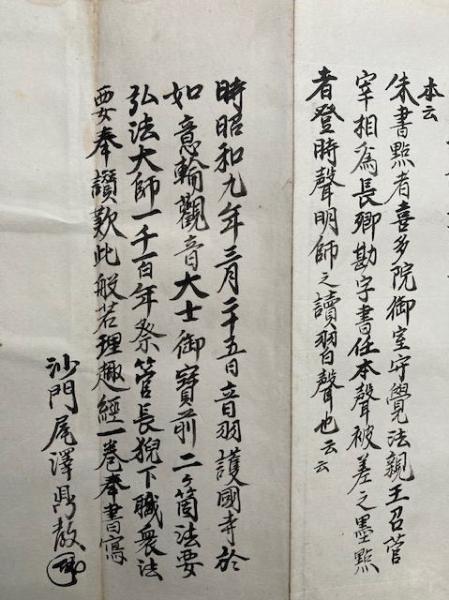 本云
朱書點者喜多院御室守覺法親王召菅
宰相爲長卿勘字書任本聲被差之墨點
者登時聲明師之讀習聲也云云
時昭和九年三月二十五日音羽護國寺於
如意輪觀音大士御寶前二ヶ箇法要
弘法大師一千百年祭管長猊下職衆法
要奉讃歎此般若理趣經一巻奉書寫
沙門尾澤鼎教